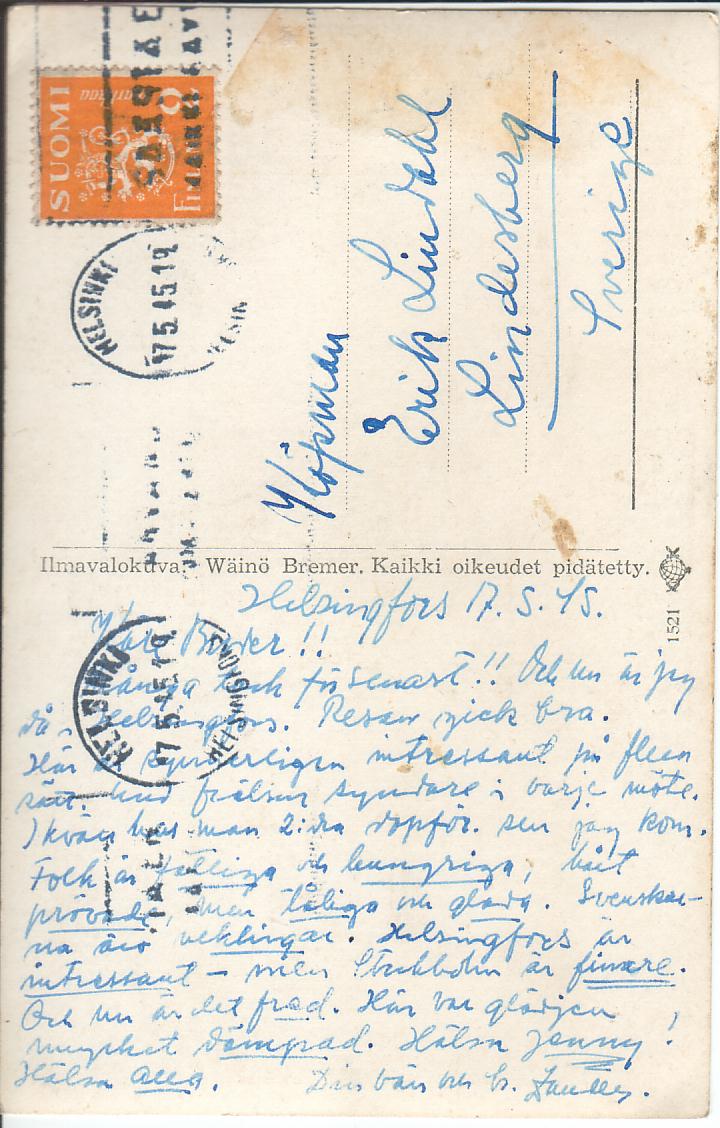 SUOMI
HELSINKI
17.5.45.19
Köpman
Erik Lindahl
Lindesberg
Sverige
Ilmavalokuva: Wäinö Bremer. Kaikki oikeudet pidätetty.
1521
Helsingfors 17.5.45.
Käre Broder!!
Många tack för senast!! Och nu är jag
då i Helsingfors. Resan gick bra.
Här är synnerligen intressant på flera
sätt. Gud frälser syndare i varje möte.
Ikväll har man 2:dra dopför. sen jag kom.
Folk är fattiga och hungriga, hårt
prövade, men tåliga och glada. Svenskar-
na äro veklingar. Helsingfors är
intressant – men Stockholm är finare.
Och nu är det fred. Här var glädjen
mycket dämpad. Hälsa Jenny!
Hälsa alla. Din vän och br.
HELSINKI
17.5.45.19
HELSINGFORS